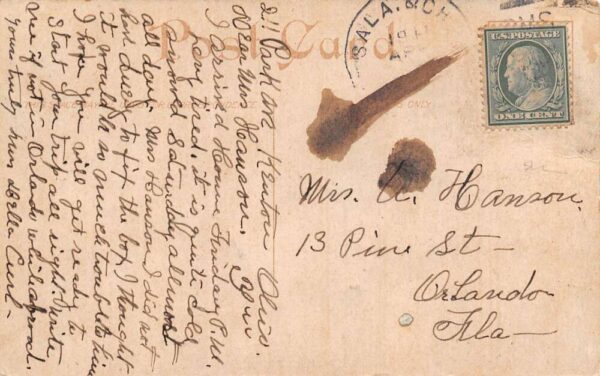 Post Card
SALA. & CH
U.S. POSTAGE
ONE CENT
211 Park Ave Kenton Ohio.
Dear Mrs Hanson,
I arrived Home Sunday P.M.
very tired. it is quite cold
snowed Saturday almost
all day. Mrs Hanson I did not
have Joey to fix the box, I thought
it would be so much trouble to him
I hope you will get ready to
Start your trip all right. write
me if not in Orlando
yours truly, Mrs Della Curl—
Mrs. A. Hanson.
13 Pine St—
Orlando—
Fla—